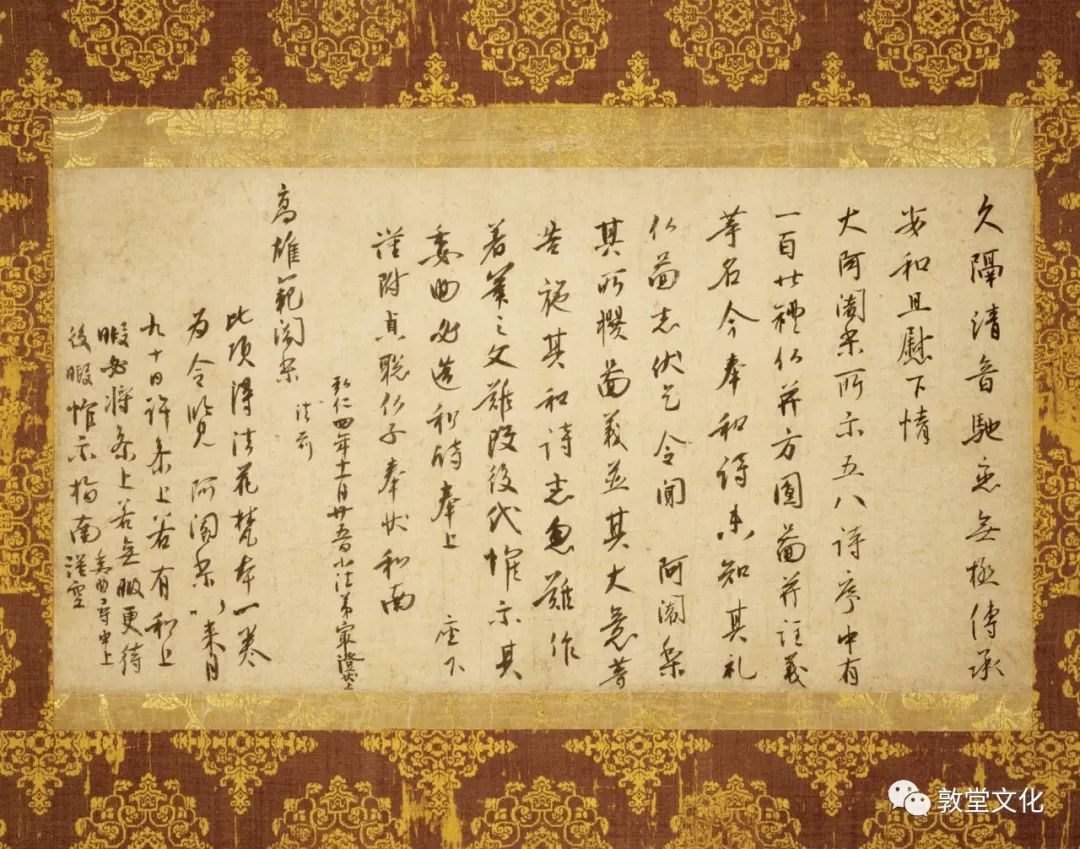 久隔清音馳恋無極傳承
安和且慰下情
大阿闍梨所示五八詩序中有
一百廿禮仏并方圓圖并註義
等名今奉和詩未知其礼
仏圖志伏乞令聞 阿闍梨
其所撰圖義並其大意等
告施其和詩者忽難作
著筆之文難改後代惟示其
委曲必造和詩奉上 座下
謹附貞聡仏子奉状和南
弘仁四年十一月廿五日小法弟最澄状上
高雄範闍梨
法前
此頃得法花梵本一巻
為令覧 阿闍梨以来月
九十日許参上若有和上
暇必将参上若無暇更待
後暇惟示指南 謹空
敦堂文化